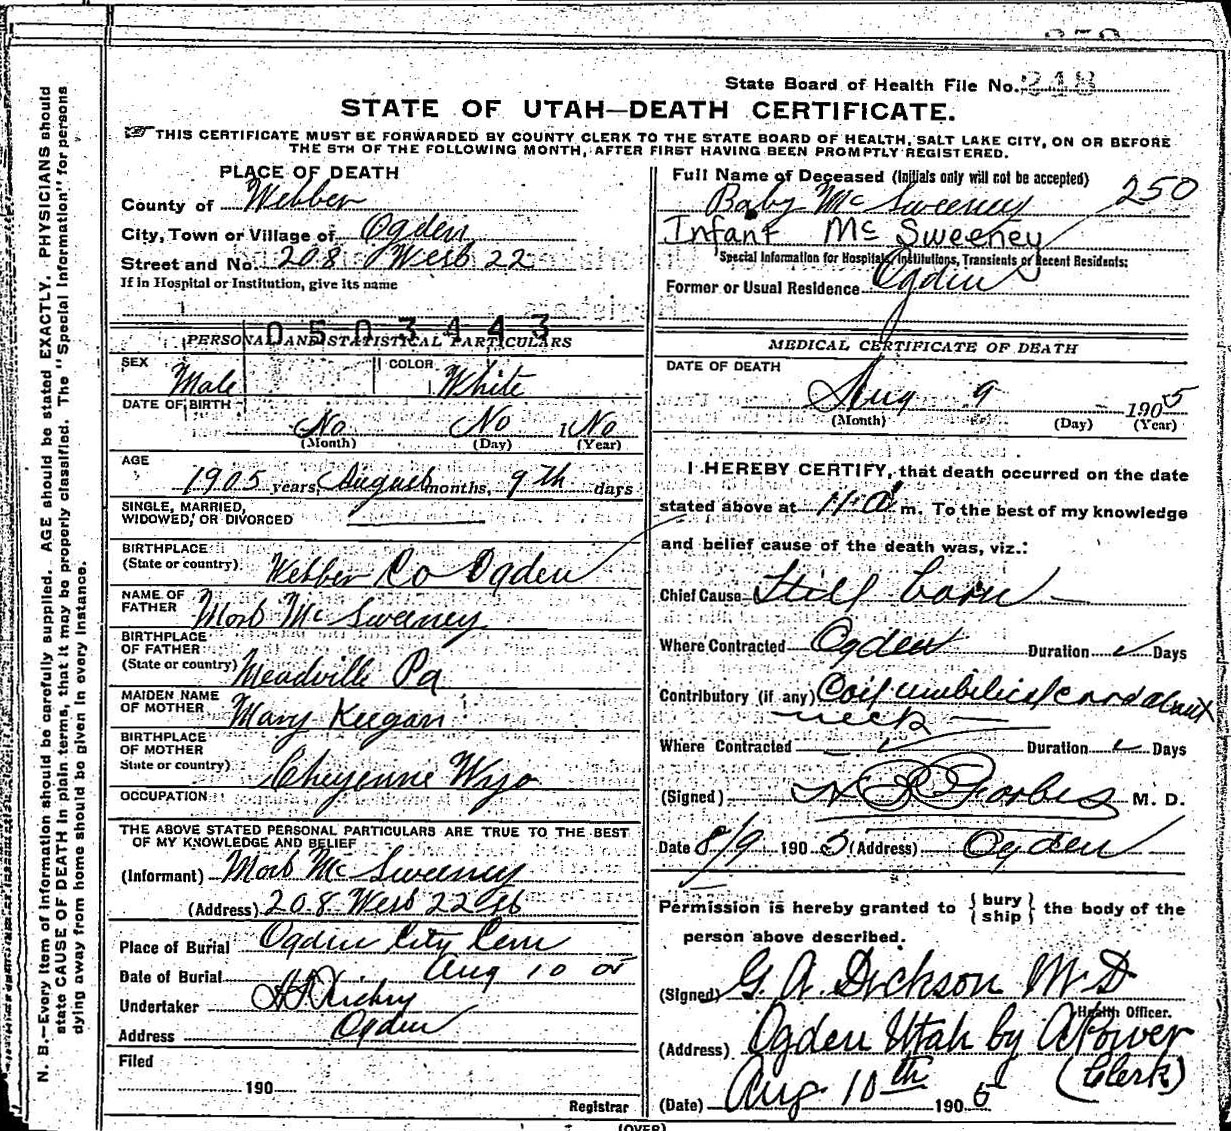 State Board of Health File No. 248
STATE OF UTAH—DEATH CERTIFICATE.
THIS CERTIFICATE MUST BE FORWARDED BY COUNTY CLERK TO THE STATE BOARD OF HEALTH, SALT LAKE CITY, ON OR BEFORE
THE 5TH OF THE FOLLOWING MONTH, AFTER FIRST HAVING BEEN PROMPTLY REGISTERED.
PLACE OF DEATH
County of Webber
City, Town or Village of Ogden
Street and No. 208 West 22
If in Hospital or Institution, give its name
0503443
PERSONAL AND STATISTICAL PARTICULARS
SEX Male COLOR White
DATE OF BIRTH
No No 1 No
(Month) (Day) (Year)
AGE
1905 years, August months, 9th days
SINGLE, MARRIED,
WIDOWED, OR DIVORCED
BIRTHPLACE
(State or country) Webber Co Ogden
NAME OF
FATHER Mort McSweeney
BIRTHPLACE
OF FATHER
(State or country) Meadville Pa
MAIDEN NAME
OF MOTHER Mary Keegan
BIRTHPLACE
OF MOTHER
State or country) Cheyenne Wyo
OCCUPATION
THE ABOVE STATED PERSONAL PARTICULARS ARE TRUE TO THE BEST
OF MY KNOWLEDGE AND BELIEF
(Informant) Mort McSweeney
(Address) 208 West 22 st
Place of Burial Ogden City Cem
Date of Burial Aug 10 05
Undertaker
Address Ogden
Filed
190
Registrar
Full Name of Deceased (Initials only will not be accepted)
Baby McSweeney 250
Infant McSweeney
Special Information for Hospitals, Institutions, Transients or Recent Residents:
Former or Usual Residence Ogden
MEDICAL CERTIFICATE OF DEATH
DATE OF DEATH
Aug 9 1905
(Month) (Day) (Year)
I HEREBY CERTIFY, that death occurred on the date
stated above at m. To the best of my knowledge
and belief cause of the death was, viz.:
Chief Cause Still born
Where Contracted Ogden Duration Days
Contributory (if any) Coil umbilical cord about
neck
Where Contracted Duration Days
(Signed) Forbes M. D.
Date 8/9 1905 (Address) Ogden
Permission is hereby granted to {bury
ship} the body of the
person above described.
(Signed) G. A. Dickson M D
Health Officer.
(Address) Ogden Utah by
(Clerk)
(Date) Aug 10th 1905
(OVER)
N. B.—Every item of information should be carefully supplied. AGE should be stated EXACTLY. PHYSICIANS should
state CAUSE OF DEATH in plain terms, that it may be properly classified. The "Special Information" for persons
dying away from home should be given in every instance.